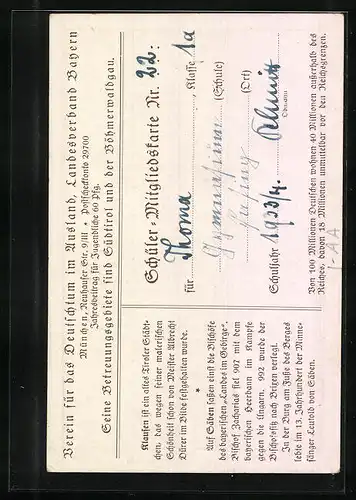 Verein für das Deutschtum im Ausland, Landesverband Bayern
München, Neuhauser Str. 9/III • Postscheckkonto 29700
Jahresbeitrag für Jugendliche 60 Pfg.
Seine Betreuungsgebiete sind Südtirol und der Böhmerwaldgau.
Klausen ist ein altes Tiroler Städt-
chen, das wegen seiner malerischen
Schönheit schon von Meister Albrecht
Dürer im Bilde festgehalten wurde.
*
Auf Säben saßen einst die Bischöfe
des bayerischen „Landes im Gebirge“.
Bischof Zacharias fiel 907 mit dem
bayerischen Heerbann im Kampfe
gegen die Ungarn. 992 wurde der
Bischofssitz nach Brixen verlegt.
In der Burg am Fuße des Berges
lebte im 13. Jahrhundert der Minne-
sänger Leutold von Säben.
Schüler-Mitgliedskarte Nr. 22.
für Thoma, Klasse 1a
Gymnasium (Schule)
(Ort)
Schuljahr 1933/4. Schmitt
Obmann
Von 100 Millionen Deutschen wohnen 40 Millionen außerhalb des
Reiches, davon 18 Millionen unmittelbar vor den Reichsgrenzen.